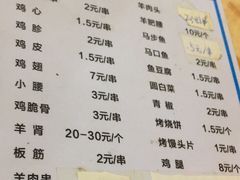 鸡心 2元/串
鸡胗 1.5元/串
鸡皮 2元/串
鸡翅 1.5元/串
小腰 7元/串
鸡脆骨 3元/串
羊肾 20-30元/个
板筋 2元/串
羊肉串
羊肉头
羊肥腰 10元/个
马步鱼 5元/串
马口鱼
鱼豆腐 2元/串
圆白菜 1.5元/串
青椒 2元/串
烤烧饼 2元/串
烤馒头片 1元/串
鸡腿 8元/个